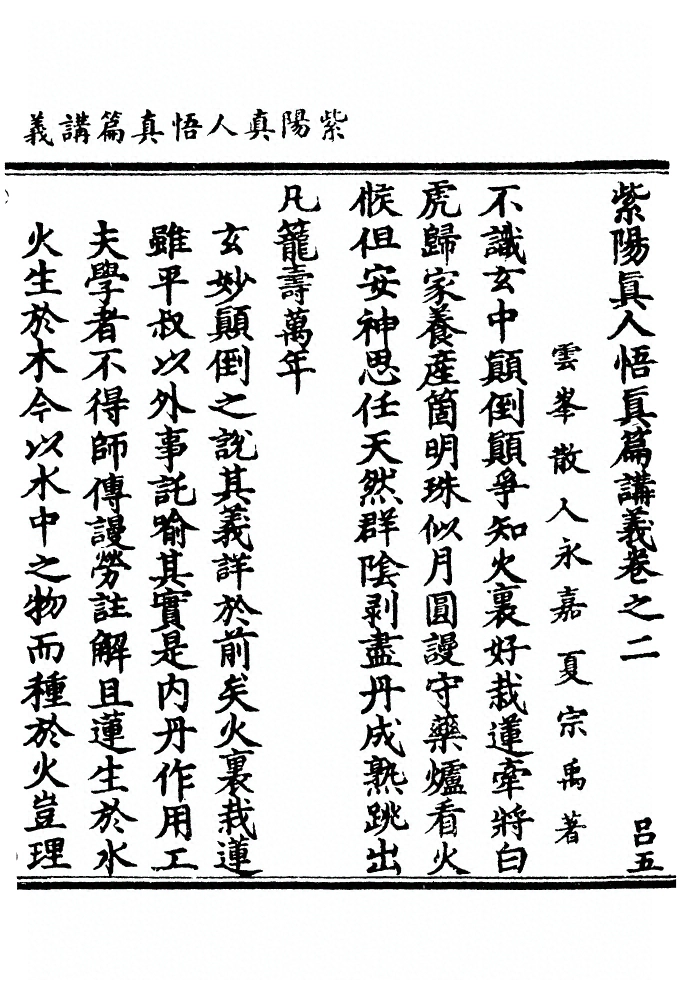 紫陽真人悟真篇講義
紫陽眞人悟眞篇講義卷之二
呂五
雲峯散人永嘉夏宗禹著
不識玄中顛倒顛爭知火裏好栽蓮牽將白
虎歸家養產箇明珠似月圓謾守藥爐看火
候但安神息任天然群陰剥盡丹成熟跳出
凡籠壽萬年
玄妙顛倒之說其義詳於前矣火裏栽蓮
雖平叔以外事託喻其實是內丹作用工
夫學者不得師傳謾勞註解且蓮生於水
火生於木今以水中之物而種於火豈理